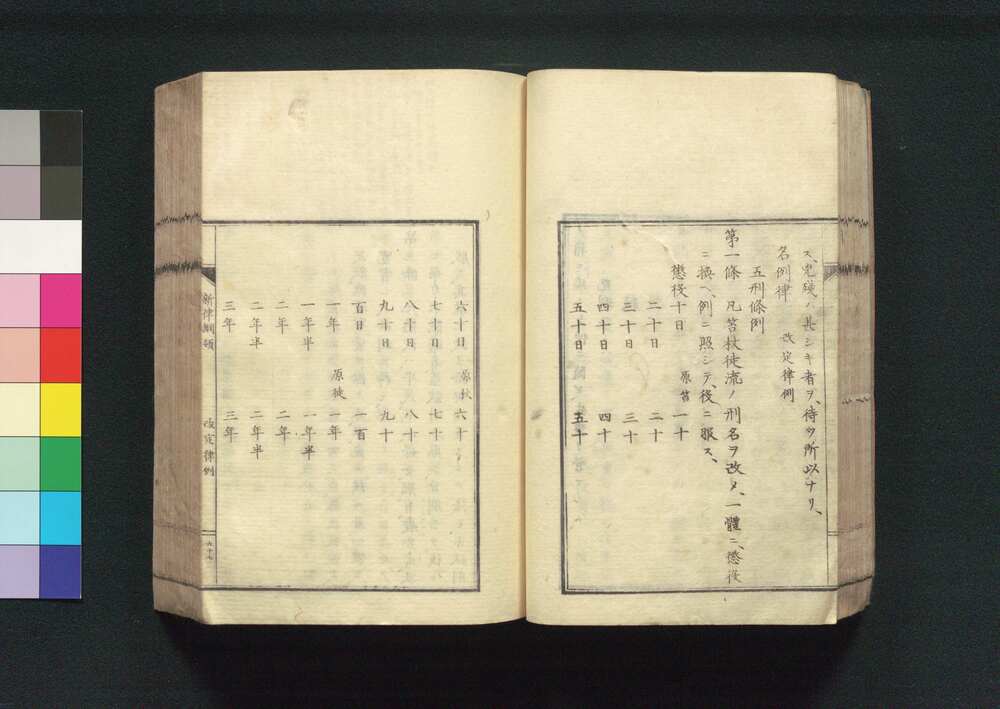 ス、兇殘ノ甚シキ者ヲ、待ツ所以ナリ、
名例律 改定律例
五刑條例
第一條 凡笞杖徒流ノ刑名ヲ改メ、一體ニ、懲役
ニ換ヘ、例ニ照シテ、役ニ服ス、
懲役十日 原笞 一十
二十日 二十
三十日 三十
四十日 四十
五十日 五十
六十日 原杖 六十
七十日 七十
八十日 八十
九十日 九十
百日 一百
一年 原徒 一年
一年半 一年半
二年 二年
二年半 二年半
三年 三年
新律綱領 改定律例